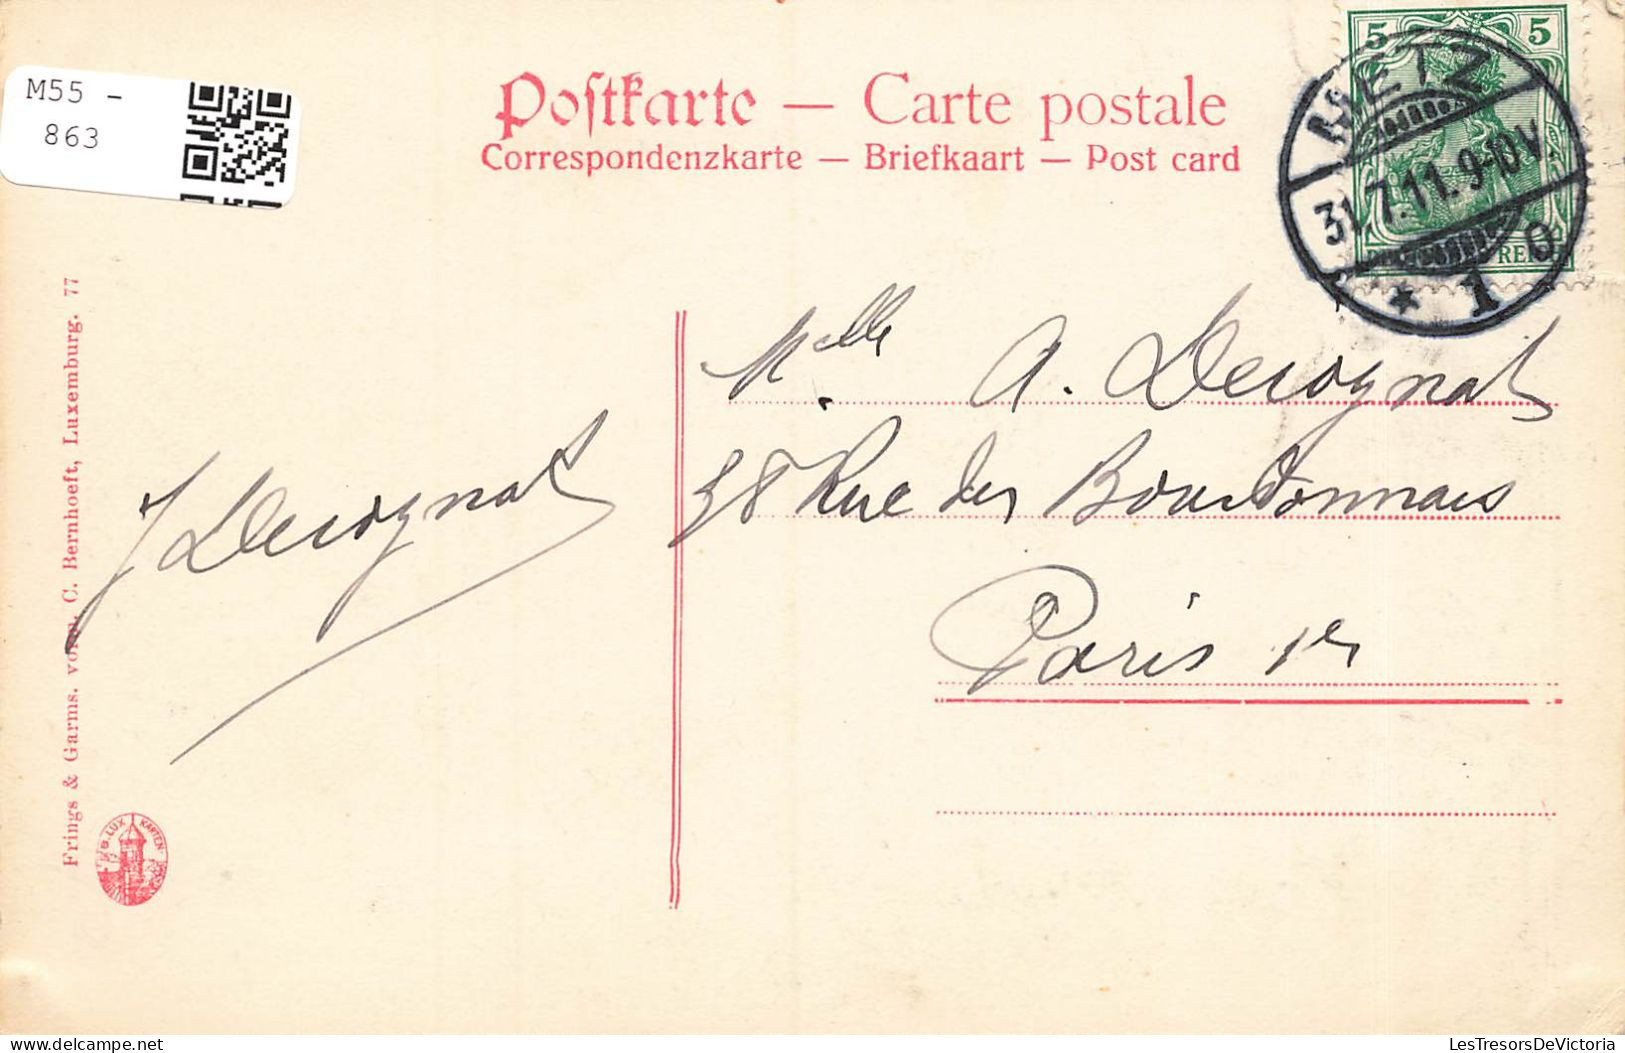 M55 -
863
Postkarte — Carte postale
Correspondenzkarte — Briefkaart — Post card
5 5
METZ
31.7.11.9-10V.
* 1 o
REICH
Melle A. Decognat
38 Rue des Bourdonnais
Paris 1er
J Decognat
Frings & Garms. vorm. C. Bernhoeft, Luxemburg. 77
B. LUX KARTEN
delcampe.net
LesTresorsDeVictoria